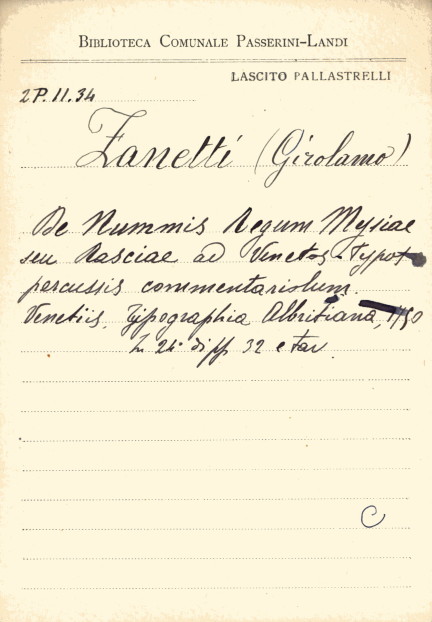 BIBLIOTECA COMUNALE PASSERINI-LANDI
LASCITO PALLASTRELLI
2P.II.34
Zanetti (Girolamo)
De Nummis Regum Mysiae
seu Rasciae ad Venetos Typos
percussis commentariolum.
Venetiis, Typographia Albritiana, 1750
in 24° di pp 32 e tav.
C